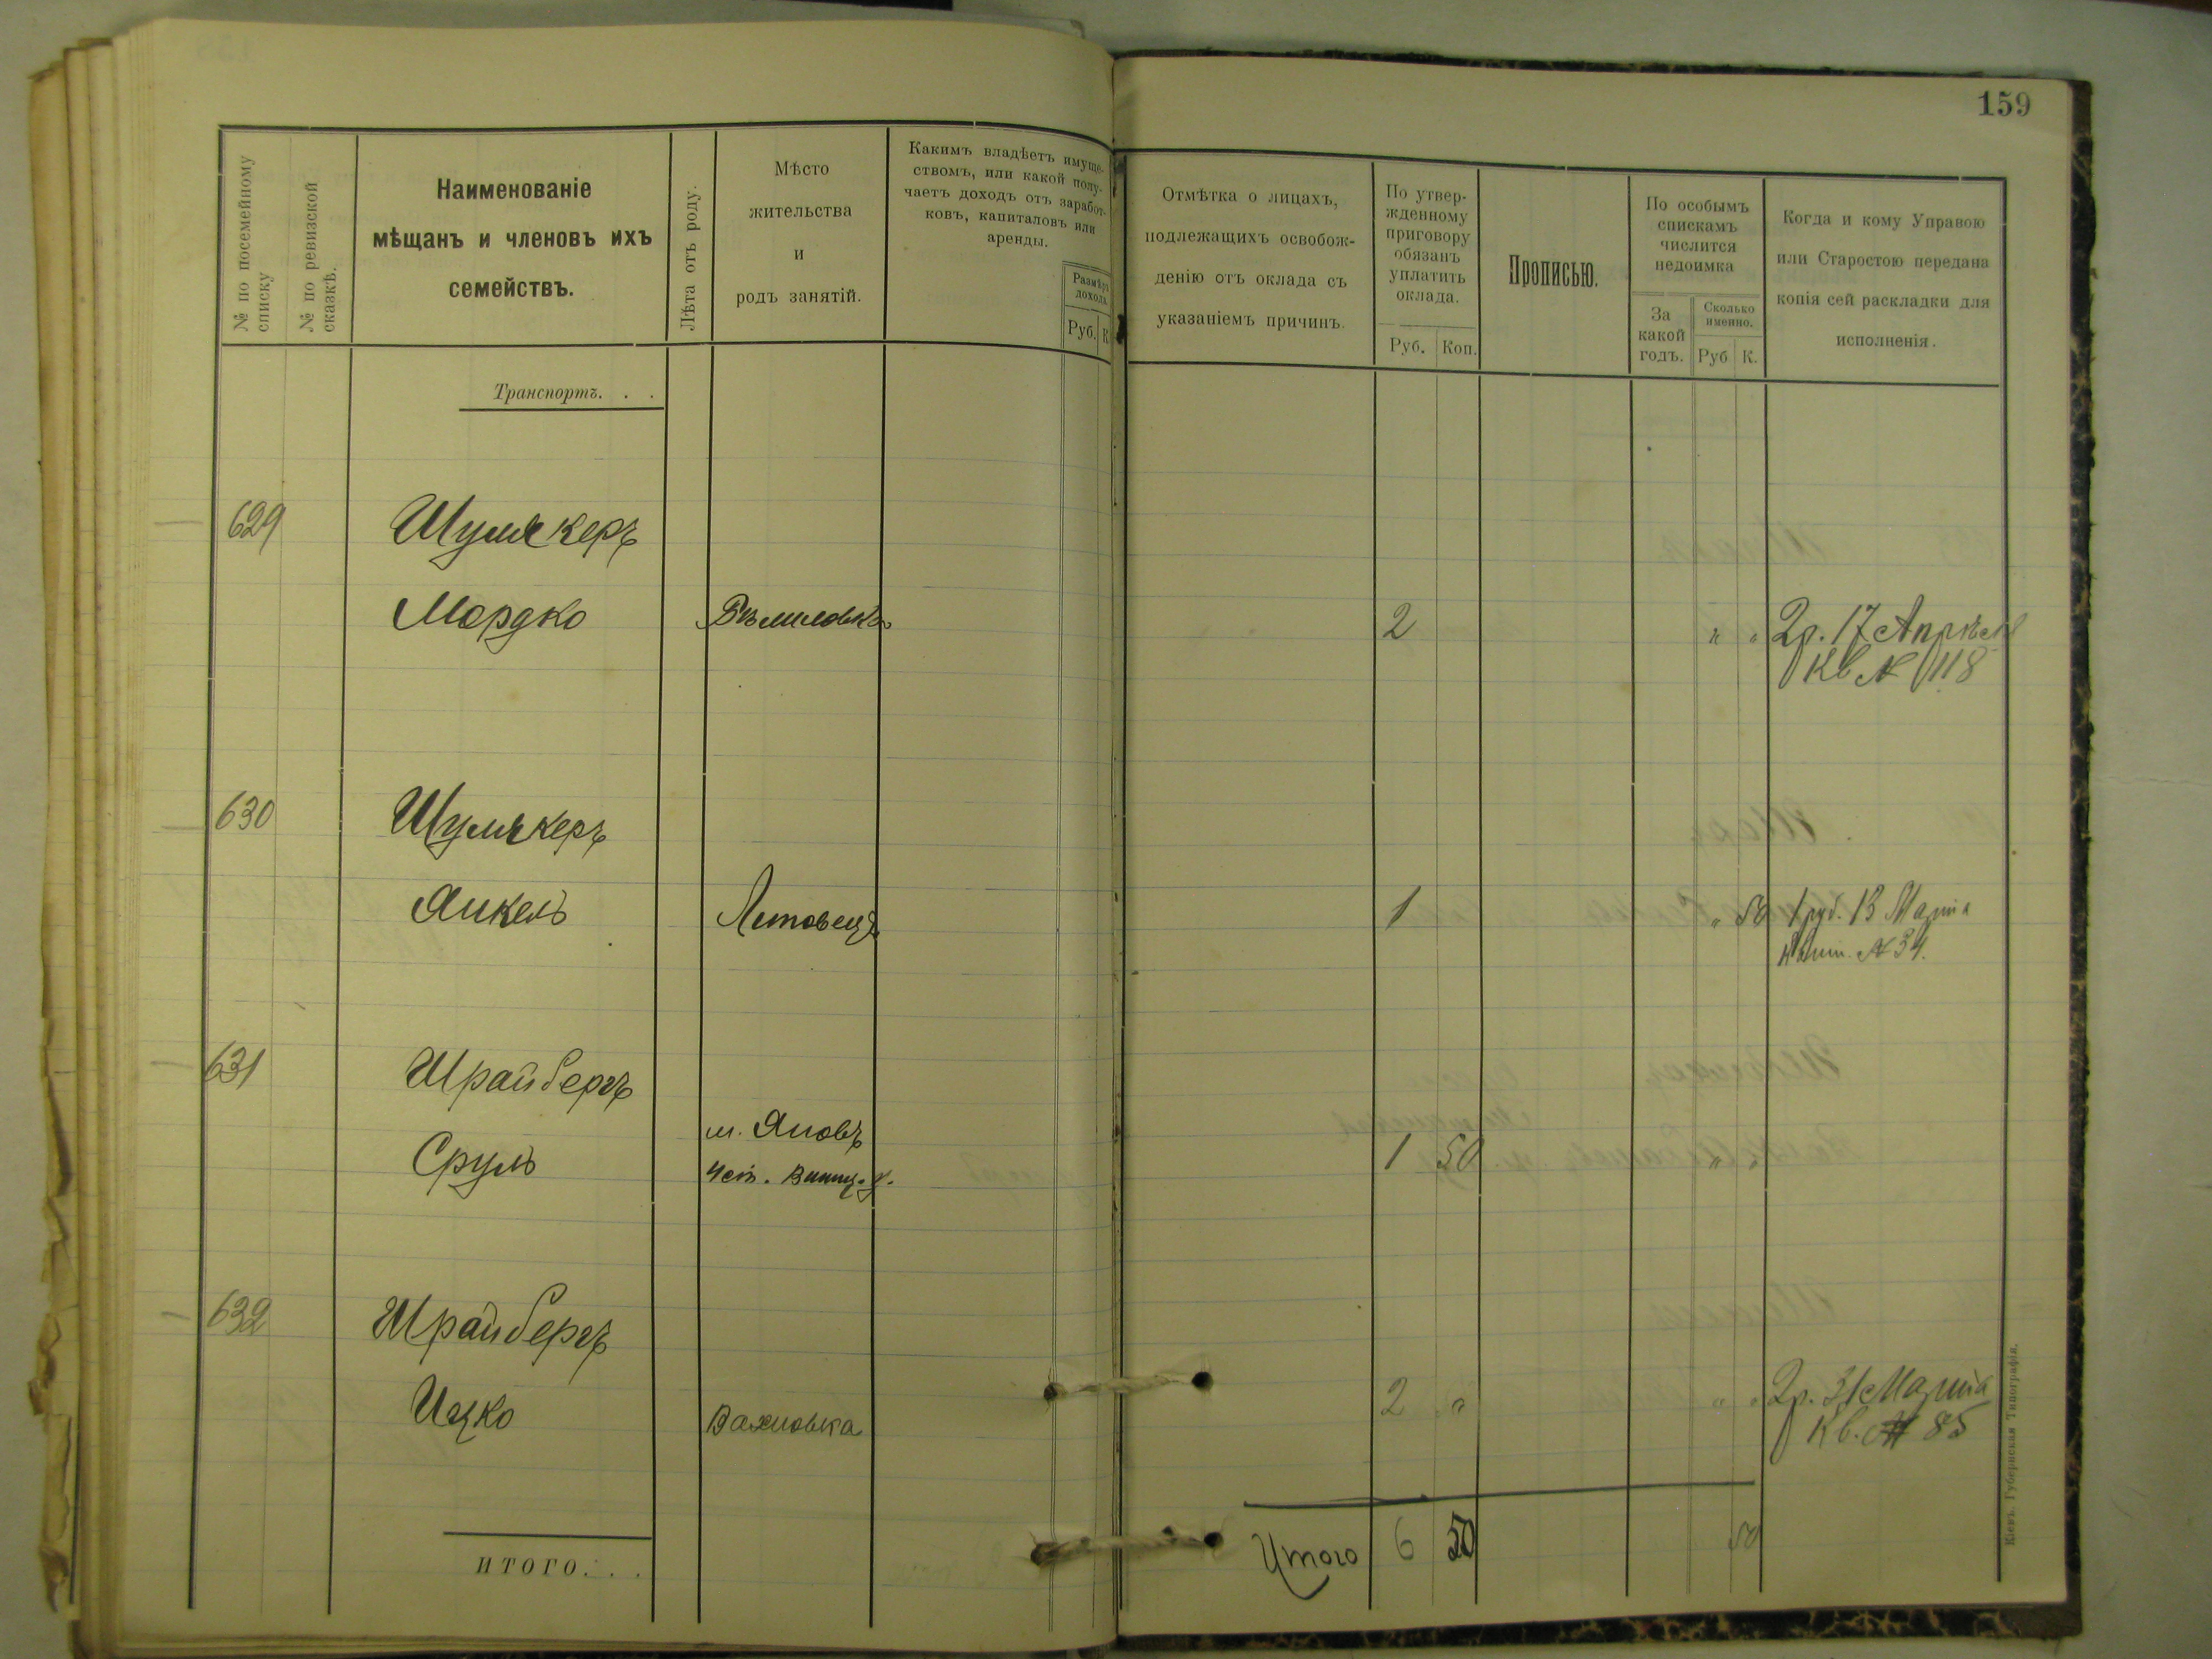 159
№ по посемейному списку
№ по ревизской сказкѣ.
Наименованіе
мѣщанъ и членовъ ихъ
семействъ.
Лѣта отъ роду.
Мѣсто
жительства
и
родъ занятій.
Какимъ владѣетъ имуще-
ствомъ, или какой полу-
чаетъ доходъ отъ заработ-
ковъ, капиталовъ или
аренды.
Размѣръ
дохода.
Руб. К
Отмѣтка о лицахъ,
подлежащихъ освобож-
денію отъ оклада съ
указаніемъ причинъ.
По утвер-
жденному
приговору
обязанъ
уплатить
оклада.
Руб. Коп.
Прописью.
По особымъ
спискамъ
числится
недоимка
За
какой
годъ.
Сколько
именно.
Руб К.
Когда и кому Управою
или Старостою передана
копія сей раскладки для
исполненія.
Транспортъ. . .
629 Шумскеръ
Мордко 2 " " 2р. 17 Апрѣля
Кв № 118
630 Шумскеръ
Янкель Литовецъ 1 " 50 1 руб. 13 Марта
Квит. № 34.
631 Шрайбергъ
м. Яновъ
Сруль Чет. Винниц. у. 1 50 " "
632 Шрайбергъ
Ицко Вахновка 2 " " " 2р. 31 Марта
Кв. № 85
Итого 6 50 50
ИТОГО. . .
Кіевъ. Губернская Типографія.